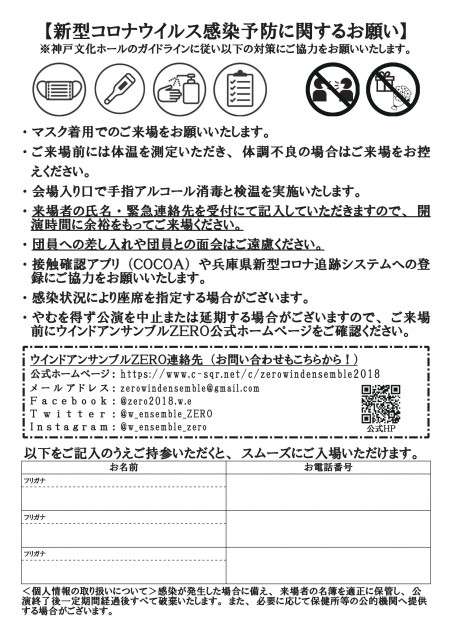 【新型コロナウイルス感染予防に関するお願い】
※神戸文化ホールのガイドラインに従い以下の対策にご協力をお願いいたします。
・マスク着用でのご来場をお願いいたします。
・ご来場前には体温を測定いただき、体調不良の場合はご来場をお控
えください。
・会場入り口で手指アルコール消毒と検温を実施いたします。
・来場者の氏名・緊急連絡先を受付にて記入していただきますので、開
演時間に余裕をもってご来場ください。
・団員への差し入れや団員との面会はご遠慮ください。
・接触確認アプリ（COCOA）や兵庫県新型コロナ追跡システムへの登
録にご協力をお願いいたします。
・感染状況により座席を指定する場合がございます。
・やむを得ず公演を中止または延期する場合がございますので、ご来場
前にウインドアンサンブルZERO公式ホームページをご確認ください。
ウインドアンサンブルZERO連絡先（お問い合わせもこちらから！）
公式ホームページ：https://www.c-sqr.net/c/zerowindensemble2018
メールアドレス：zerowindensemble@gmail.com
Facebook：@zero2018.w.e
Twitter：@w_ensemble_ZERO
Instagram：@w_ensemble_zero
公式HP
以下をご記入のうえご持参いただくと、スムーズにご入場いただけます。
お名前 お電話番号
フリガナ
フリガナ
フリガナ
＜個人情報の取り扱いについて＞感染が発生した場合に備え、来場者の名簿を適正に保管し、公
演終了後一定期間経過後すべて破棄いたします。また、必要に応じて保健所等の公的機関へ提供
する場合がございます。